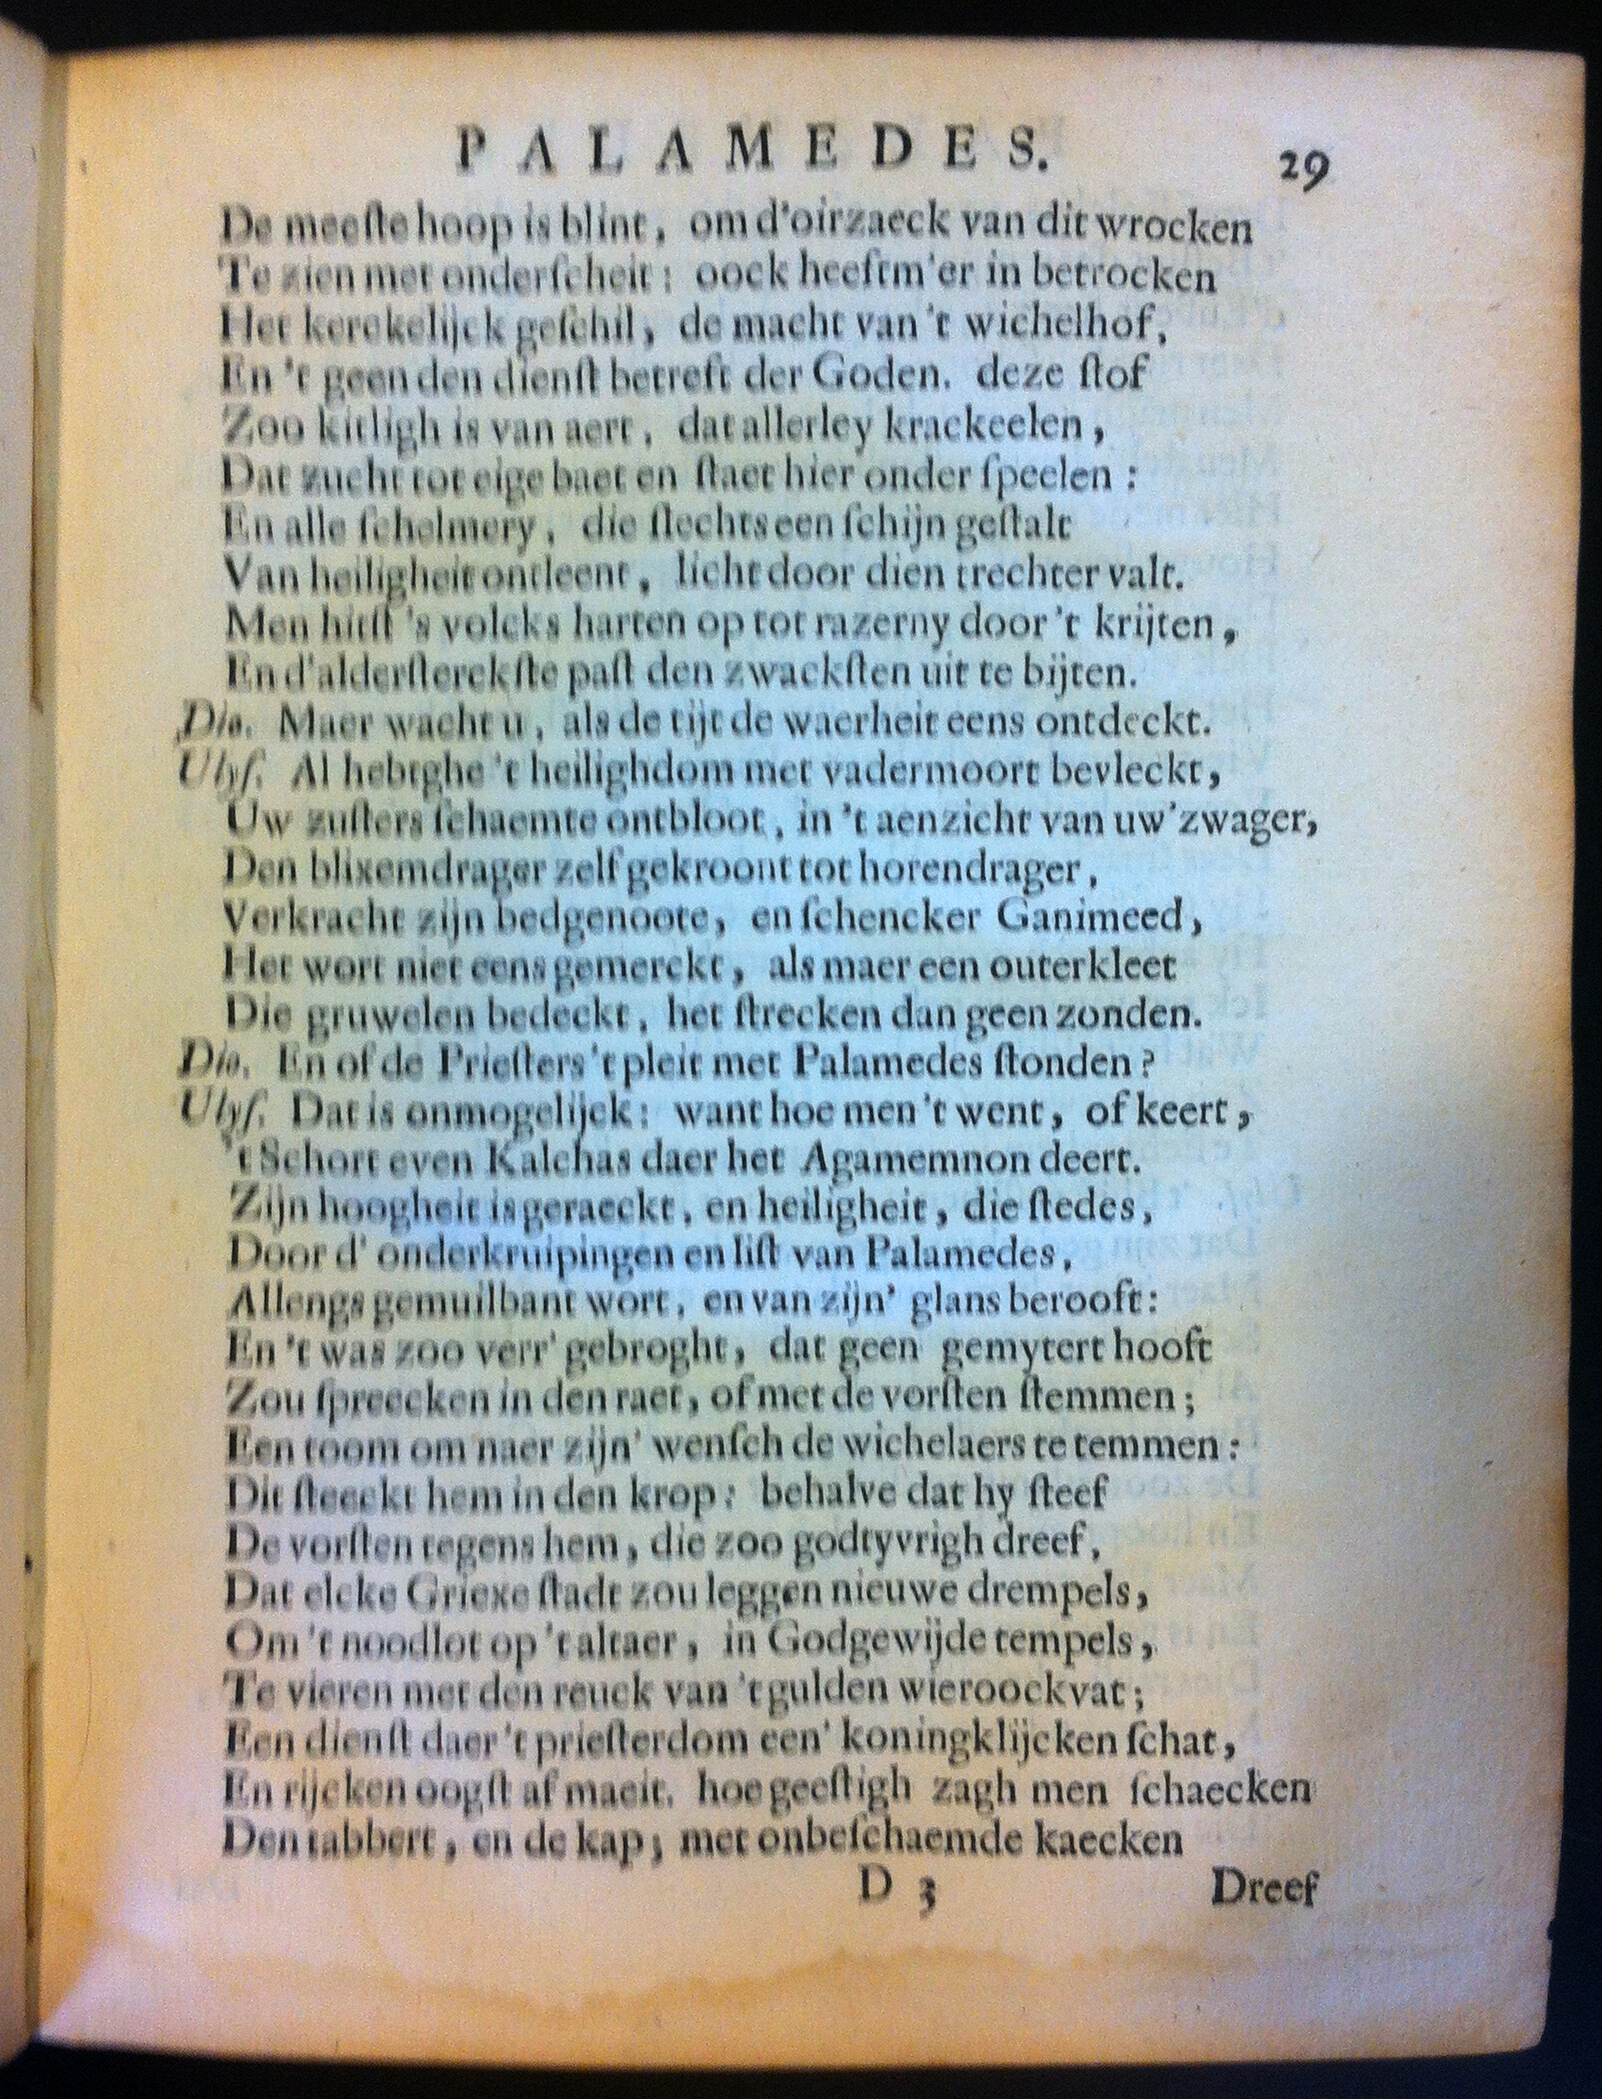 PALAMEDES. 29
De meeſte hoop is blint, om d'oirzaeck van dit wrocken
Te zien met onderſcheit: oock heeftm'er in betrocken
Het kerckelijck geſchil, de macht van 't wichelhof,
En 't geen den dienſt betreft der Goden. deze ſtof
Zoo kitligh is van aert, dat allerley krackeelen,
Dat zucht tot eige baet en ſtaet hier onder ſpeelen:
En alle ſchelmery, die ſlechts een ſchijn geſtalt
Van heiligheit ontleent, licht door dien trechter valt.
Men hitſt 's volcks harten op tot razerny door 't krijten,
En d'alderſterckſte paſt den zwackſten uit te bijten.
Dio. Maer wacht u, als de tijt de waerheit eens ontdeckt.
Ulyſ. Al hebtghe 't heilighdom met vadermoort bevleckt,
Uw zuſters ſchaemte ontbloot, in 't aenzicht van uw' zwager,
Den blixemdrager zelf gekroont tot horendrager,
Verkracht zijn bedgenoote, en ſchencker Ganimeed,
Het wort niet eens gemerckt, als maer een outerkleet
Die gruwelen bedeckt, het ſtrecken dan geen zonden.
Dio. En of de Prieſters 't pleit met Palamedes ſtonden?
Ulyſ. Dat is onmogelijck: want hoe men 't went, of keert,
't Schort even Kalchas daer het Agamemnon deert.
Zijn hoogheit is geraeckt, en heiligheit, die ſtedes,
Door d' onderkruipingen en liſt van Palamedes,
Allengs gemuilbant wort, en van zijn' glans berooft:
En 't was zoo verr' gebroght, dat geen gemytert hooft
Zou ſpreecken in den raet, of met de vorſten ſtemmen;
Een toom om naer zijn' wenſch de wichelaers te temmen:
Dit ſteeckt hem in den krop: behalve dat hy ſteef
De vorſten tegens hem, die zoo godtyvrigh dreef,
Dat elcke Griexe ſtadt zou leggen nieuwe drempels,
Om 't noodlot op 't altaer, in Godgewijde tempels,
Te vieren met den reuck van 't gulden wieroockvat;
Een dienſt daer 't prieſterdom een' koningklijcken ſchat,
En rijcken oogſt af maeit. hoe geeſtigh zagh men ſchaecken
Den tabbert, en de kap; met onbeſchaemde kaecken
D 3 Dreef